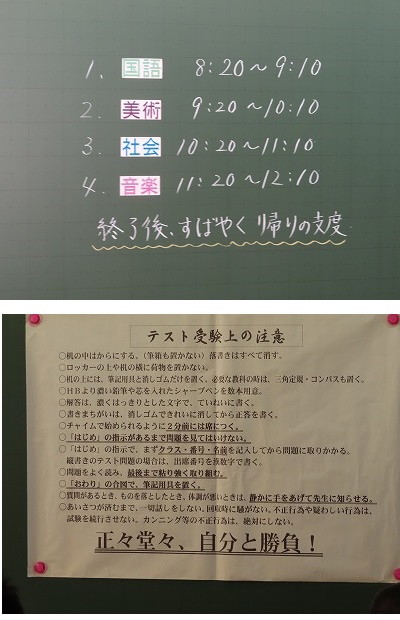 1. 国語 8:20～9:10
2. 美術 9:20～10:10
3. 社会 10:20～11:10
4. 音楽 11:20～12:10
終了後、すばやく帰りの支度
テスト受験上の注意
○机の中はからにする。（筆箱も置かない）落書きはすべて消す。
○ロッカーの上や机の横に荷物を置かない。
○机の上には、筆記用具と消しゴムだけを置く。必要な教科の時は、三角定規・コンパスも置く。
○HBより濃い鉛筆や芯を入れたシャープペンを数本用意。
○解答は、濃くはっきりとした文字で、ていねいに書く。
○書きまちがいは、消しゴムできれいに消してから正答を書く。
○チャイムで始められるように2分前には席につく。
○「はじめ」の指示があるまで問題を見てはいけない。
○「はじめ」の指示で、まずクラス・番号・名前を記入してから問題に取りかかる。
縦書きのテスト問題の場合は、出席番号を漢数字で書く。
○問題をよく読み、最後まで粘り強く取り組む。
○「おわり」の合図で、筆記用具を置く。
○質問があるとき、ものを落としたとき、体調が悪いときは、静かに手をあげて先生に知らせる。
○あいさつが済むまで、一切話しをしない。回収時に騒がない。不正行為や疑わしい行為は、
試験を続行させない。カンニング等の不正行為は、絶対にしない。
正々堂々、自分と勝負！